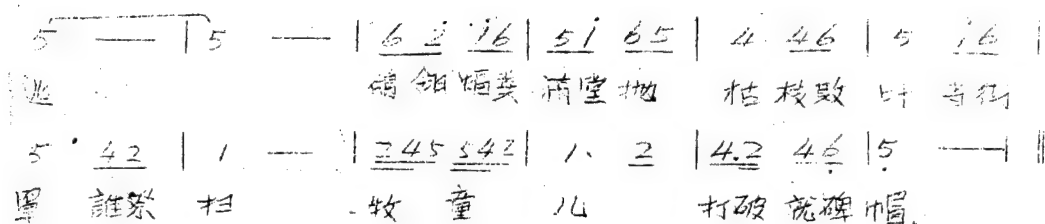 5 — | 5 — | 6 2̇ 1̇6 | 5 1̇ 65 | 4 46 | 5 1̇6 |
逃 鴿翎蝠粪 滿堂抛 枯枝败叶
5· 42 | 1 — | 245 542 | 1. 2 | 4.2 46̣ | 5̣ — ||
罩 誰祭 扫 牧 童 儿 打破龙碑帽